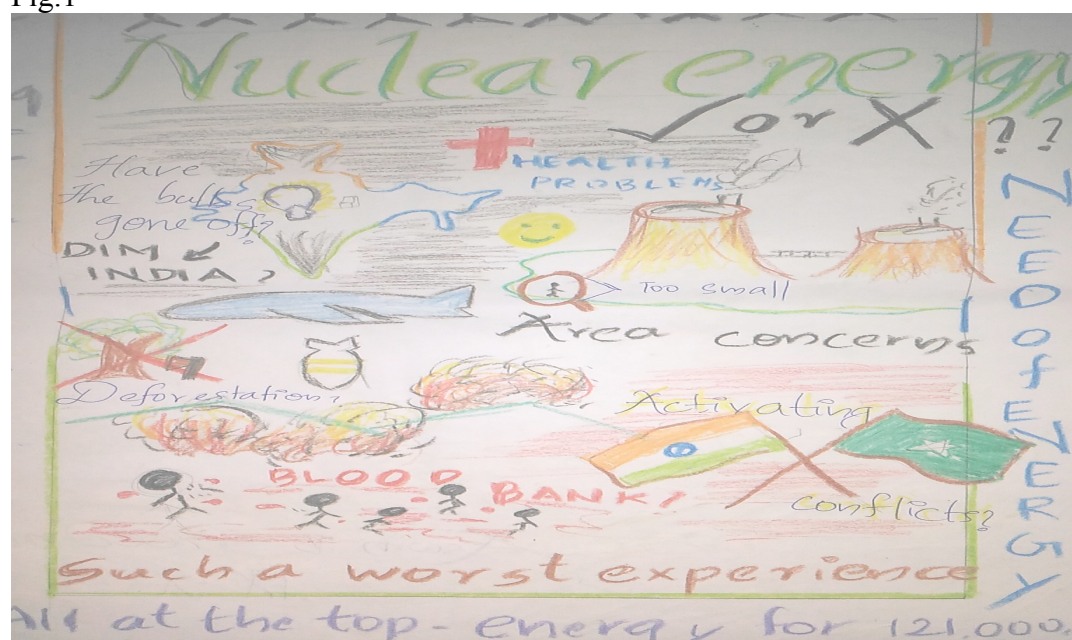 Fig.1
Nuclear energy
✓ or X ??
Have
The bulbs
gone off?
DIM
INDIA?
HEALTH
PROBLEMS
Too small
Area concerns
Deforestation?
Activating
conflicts?
BLOOD
BANK?
Such a worst experience
All at the top - energy for 121,000,
NEED of ENERGY